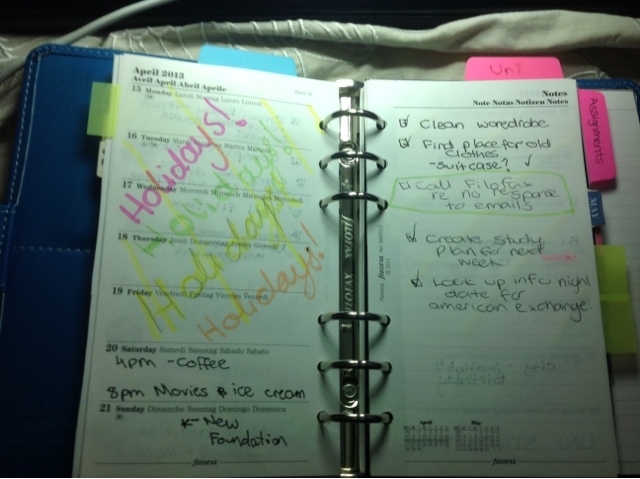 April 2013
Avril April Abril Aprile
15 Monday Lundi Montag Lunes Lunedì
Holidays!
Holidays!
Holidays!
Holidays!
16 Tuesday Mardi Martes Martedì
17 Wednesday Mercredi Mittwoch Miércoles Mercoledì
18 Thursday Jeudi Donnerstag Jueves Giovedì
19 Friday Vendredi Freitag Viernes Venerdì
20 Saturday Samedi Samstag Sábado Sabato
4pm - Coffee
8pm Movies & ice cream
21 Sunday Dimanche Sonntag Domingo Domenica
← New
Foundation
filofax
FILOFAX
Uni
Assignments
MAY
Notes
Note Notas Notizen Notes
Clean woredrobe
Find place for old
clothes
-suitcase? ✓
Call Filofax
re no response
to emails
Create study
plan for next
week
Look up info night
date for
american exchange.
Personal filofax
April May
filofax